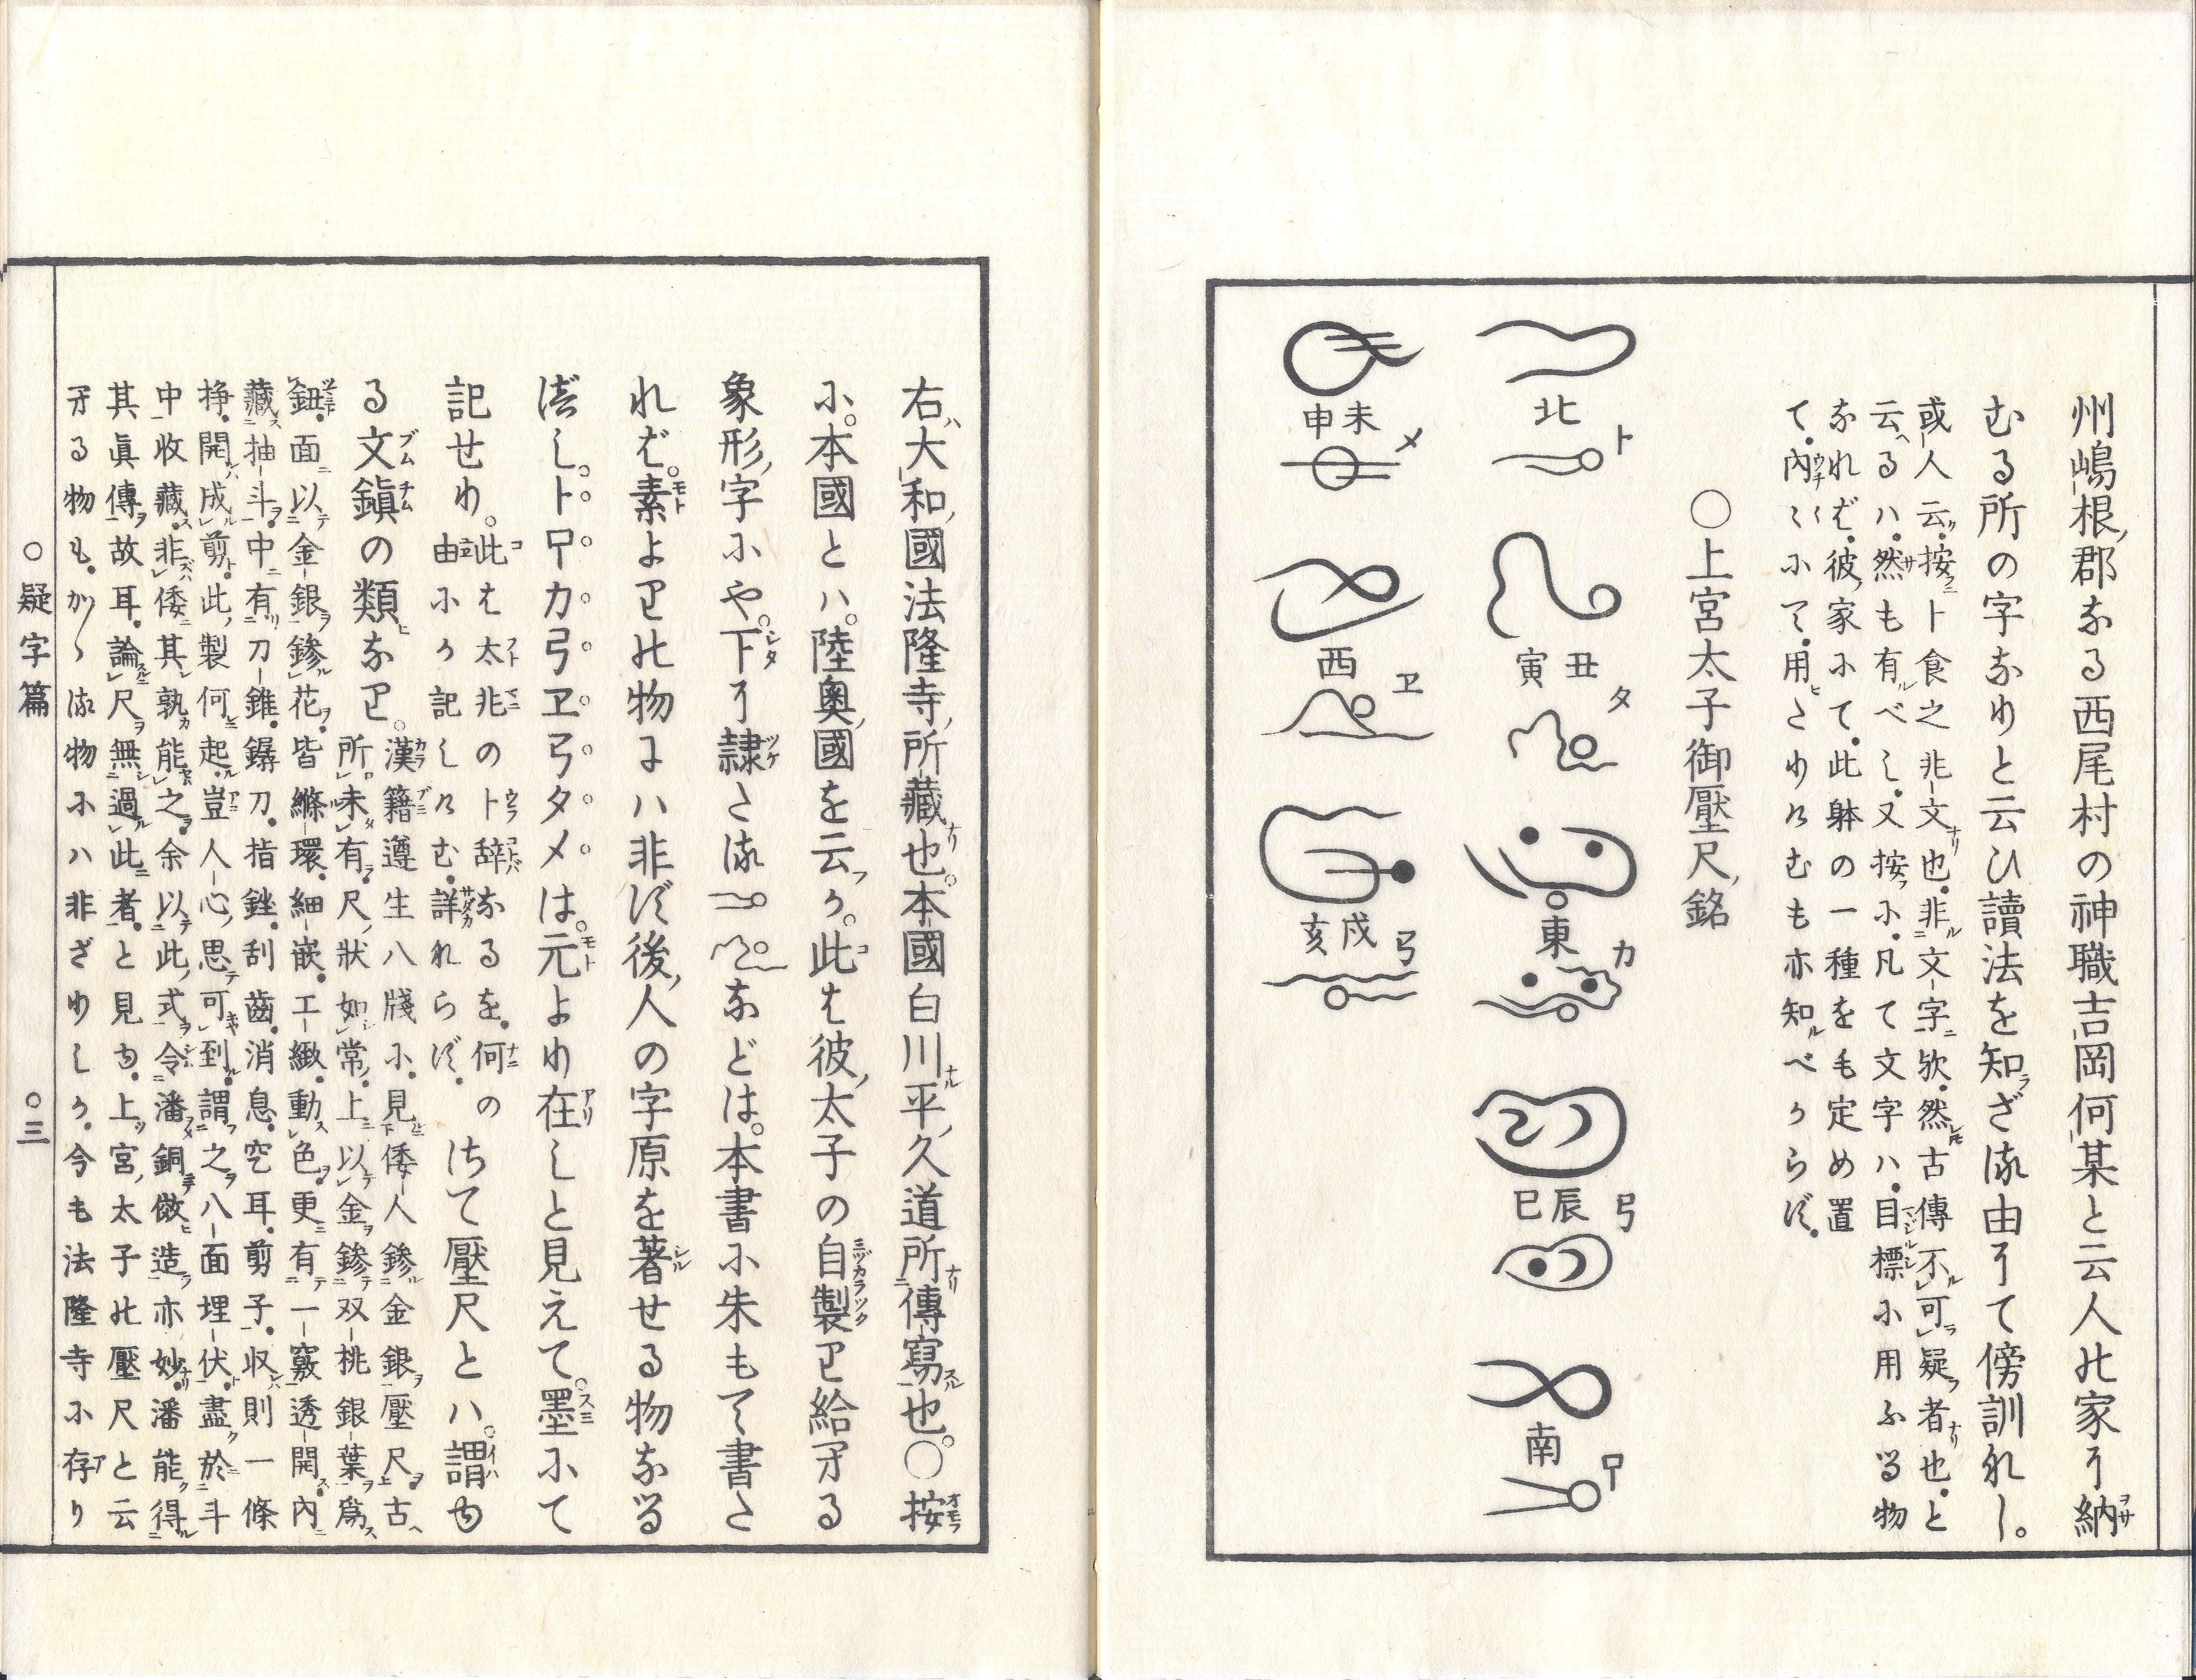 州嶋根郡なる西尾村の神職吉岡何某と云人の家に納
むる所の字なりと云ひ讀法を知ざる由にて傍訓なし。
或人云按卜食之非文也非文字歟然古傳不可疑者也と
云るハ然も有べし又按に凡て文字ハ目標に用ふる物
なれば彼家にて此躰の一種を毛定め置
て内〻にして用たりけむも亦知べからず
○上宮太子御壓尺銘
北 ト
丑寅 タ
東 カ
辰巳 弓
南 㠯
未申 メ
西 ヱ
戌亥 弓
右大和國法隆寺所藏也。本國白川平久道所傳寫也。○按
に。本國とハ。陸奥國を云か。此は彼太子の自製り給へる
象形字にや。下に隷たるなどは。本書に朱もて書た
れば。素よりの物にハ非ず後人の字原を著せる物なる
べし。ト㠯カ弓ヱ弓タメは。元より在しと見えて。墨にて
記せり。此は太非の卜辞なるを何の
由にか記しけむ詳ならず
さて壓尺とハ。謂ゆ
る文鎭の類なり。
漢籍遵生八牋に見倭人鏒金銀壓尺古
所未有尺狀如常上以金鏒双桃銀葉爲
鈕面以金銀鏒花皆縧環細嵌工緻動色更有一竅透開内
藏抽斗中有刀錐鑷刀指銼刮齒消息空耳剪子収則一條
挣開成剪此製何起豈人心思可到謂之八面埋伏盡於斗
中收藏非倭其孰能之余以此式令潘銅倣造亦妙潘能得
其眞傳故耳論尺無過此者と見ゆ上宮太子の壓尺と云
へる物もかゝる物にハ非ざりしか今も法隆寺に存り
○疑字篇 ○三